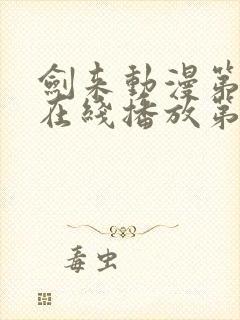 劍来動漫第
在綫播放第
毒虫